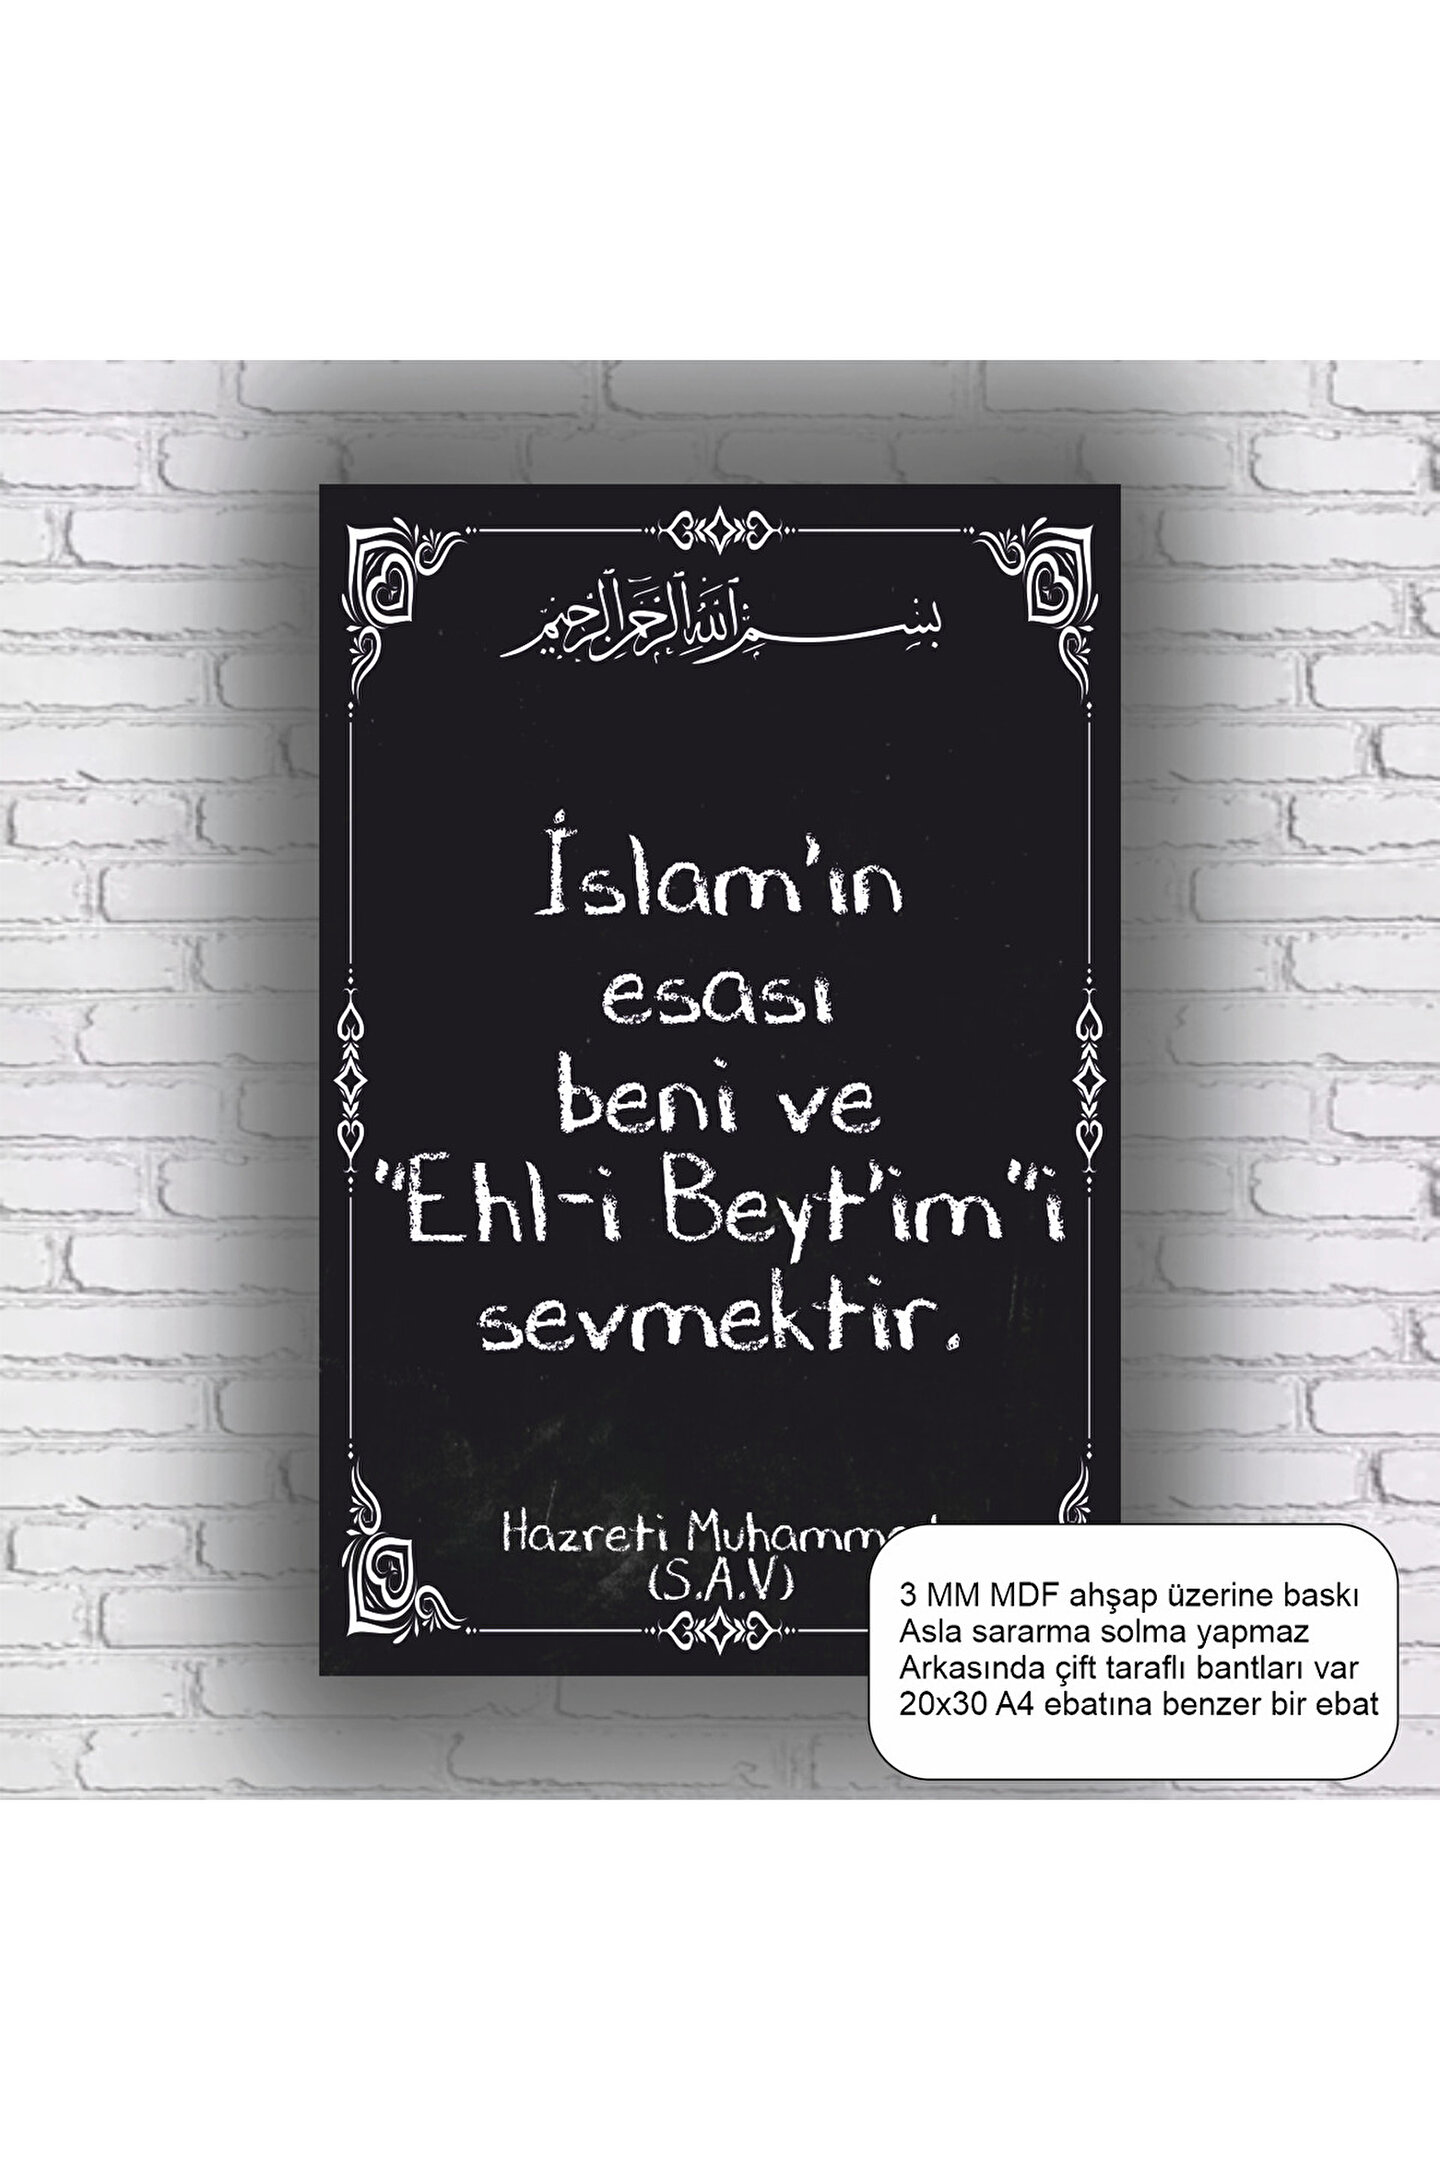 بِسْمِ اللهِ الرَّحْمَنِ الرَّحِيمِ
İslam'ın
esası
beni ve
"Ehl-i Beyt'im"i
sevmektir.
Hazreti
(S.A.V)
3 MM MDF ahşap üzerine baskı
Asla sararma solma yapmaz
Arkasında çift taraflı bantları var
20x30 A4 ebatına benzer bir ebat